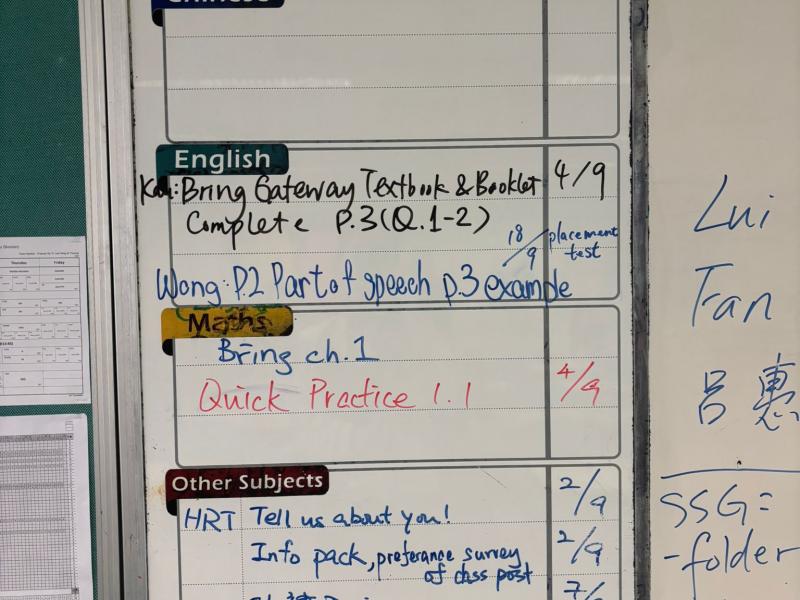 English
Bring Gateway Textbook & Booklet 4/9
Complete P.3(Q.1-2)
18/9 placement test
Wong: P.2 Part of speech p.3 example
Maths
Bring ch.1
Quick Practice 1.1 4/9
Other Subjects
HRT Tell us about you! 2/9
Info pack, preferance survey 2/9
of class post
Lui
Fan
呂惠
SSG=
-folder
Thursday Friday